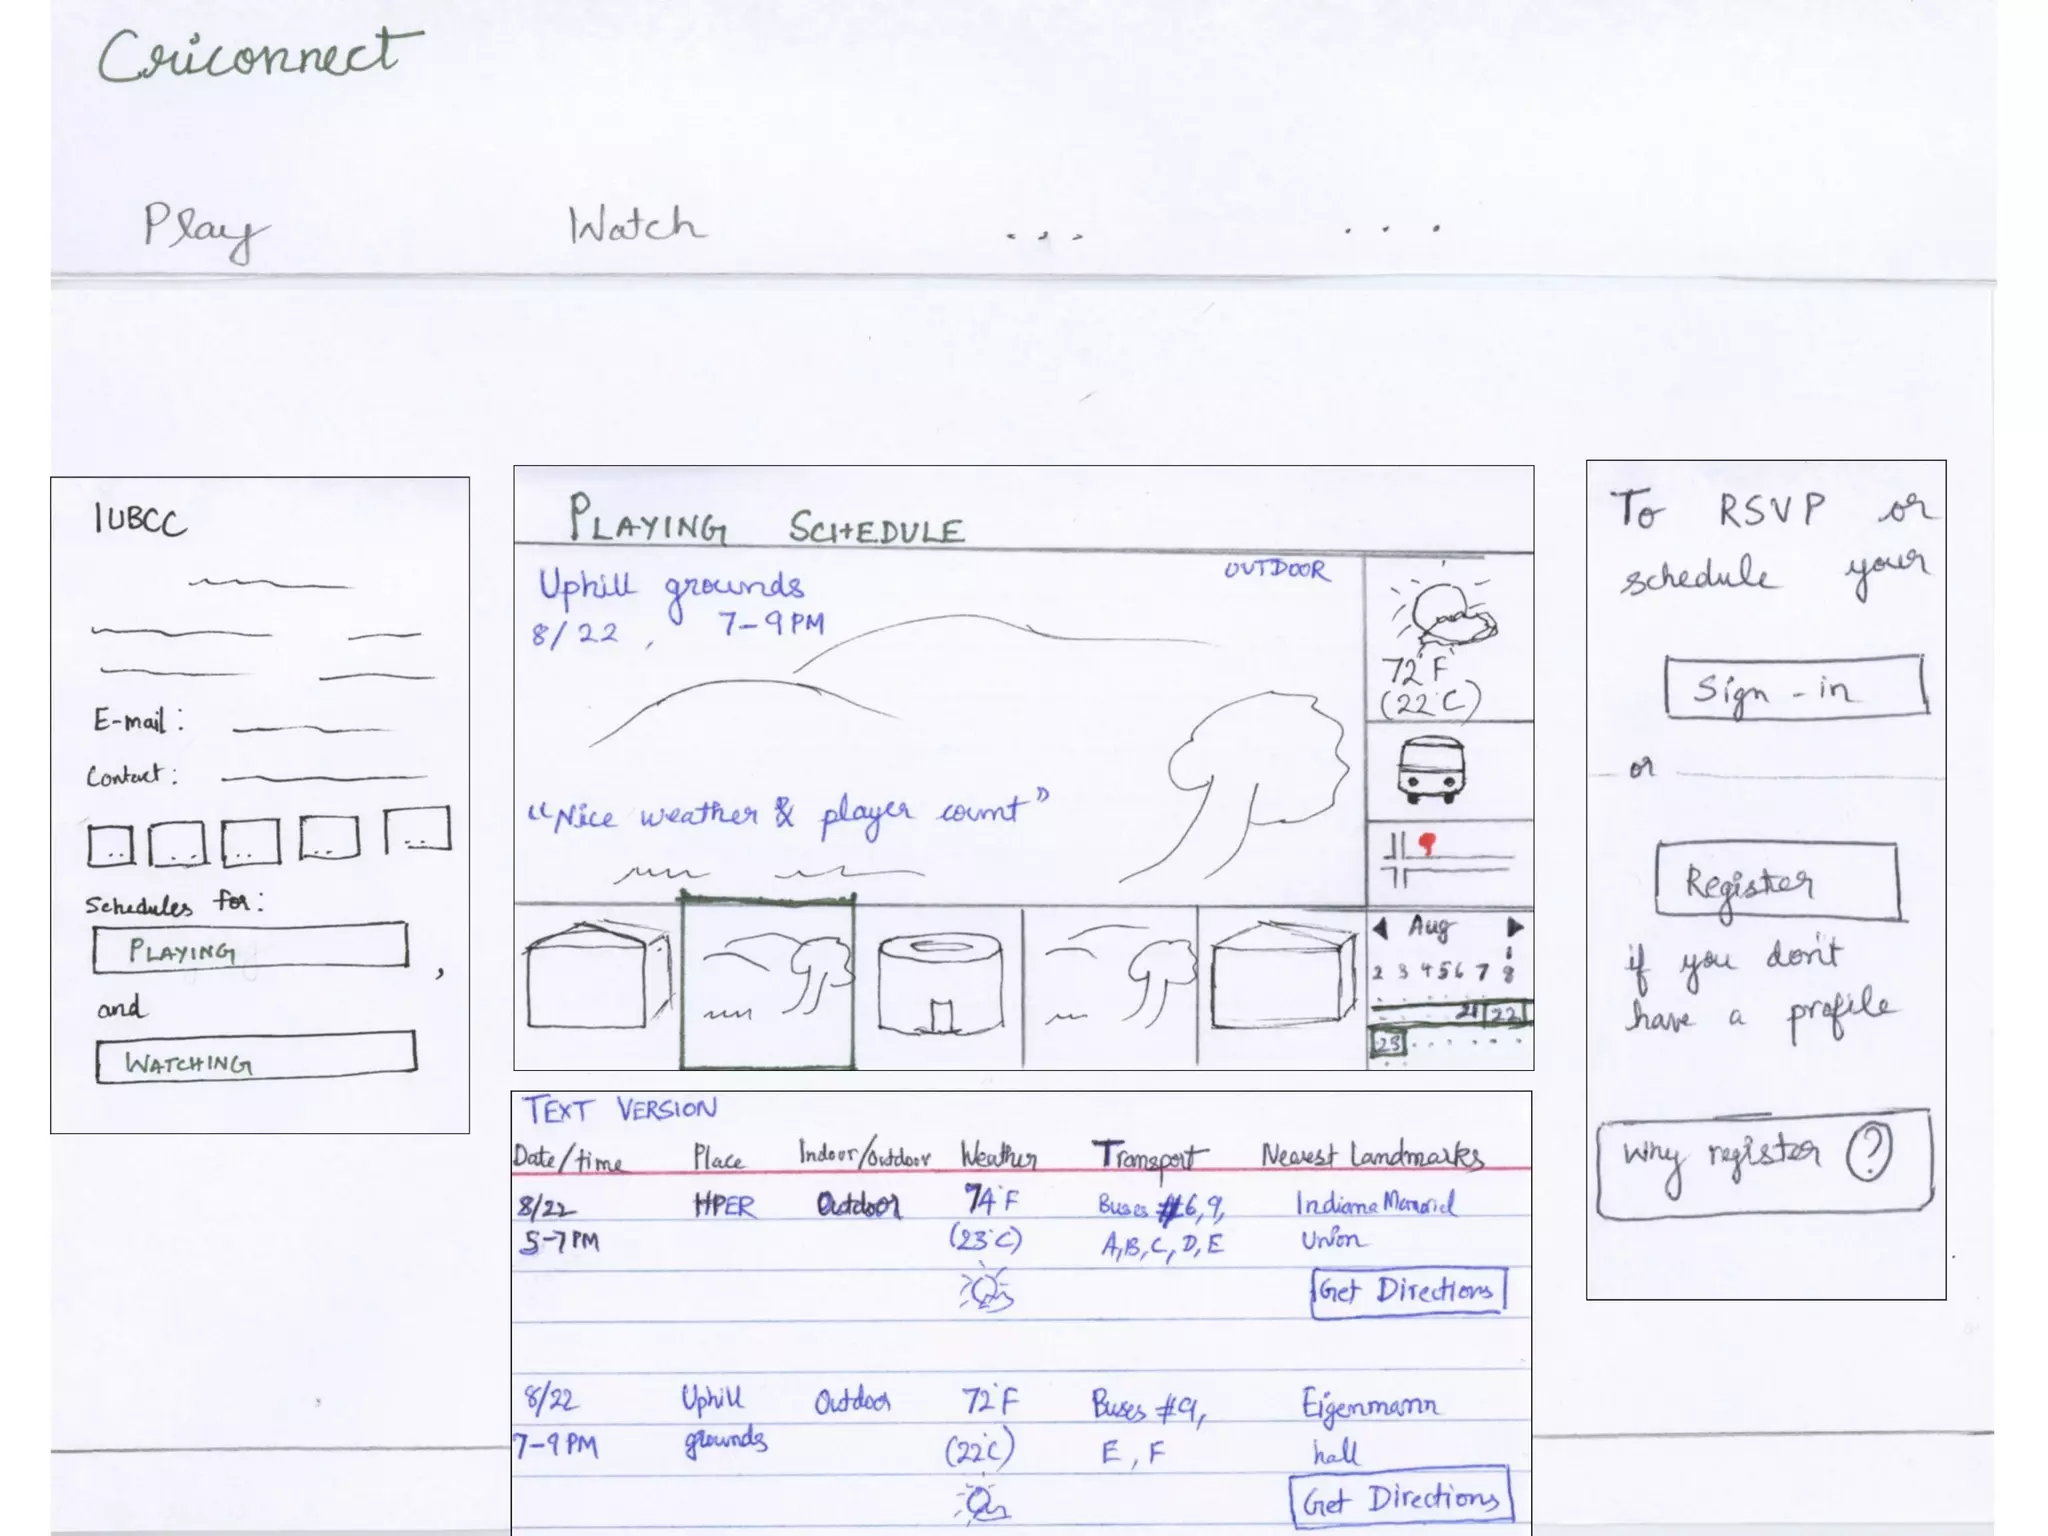 Criconnect
Play Watch ... ...
IUBCC
E-mail:
Contact:
Schedules for:
PLAYING ,
and
WATCHING
PLAYING SCHEDULE
Uphill grounds OUTDOOR
8/22, 7-9PM
72°F
(22°C)
"Nice weather & player count"
Aug
1
2 3 4 5 6 7 8
21 22
23
TEXT VERSION
Date/time Place Indoor/Outdoor Weather Transport Nearest Landmarks
8/22 HPER Outdoor 74°F Buses #6, 9, Indiana Memorial
5-7PM (23°C) A, B, C, D, E Union
Get Directions
8/22 Uphill Outdoor 72°F Buses #9, Eigenmann
7-9PM grounds (22°C) E, F hall
Get Directions
To RSVP or
schedule your
Sign-in
or
Register
if you don't
have a profile
Why register ?